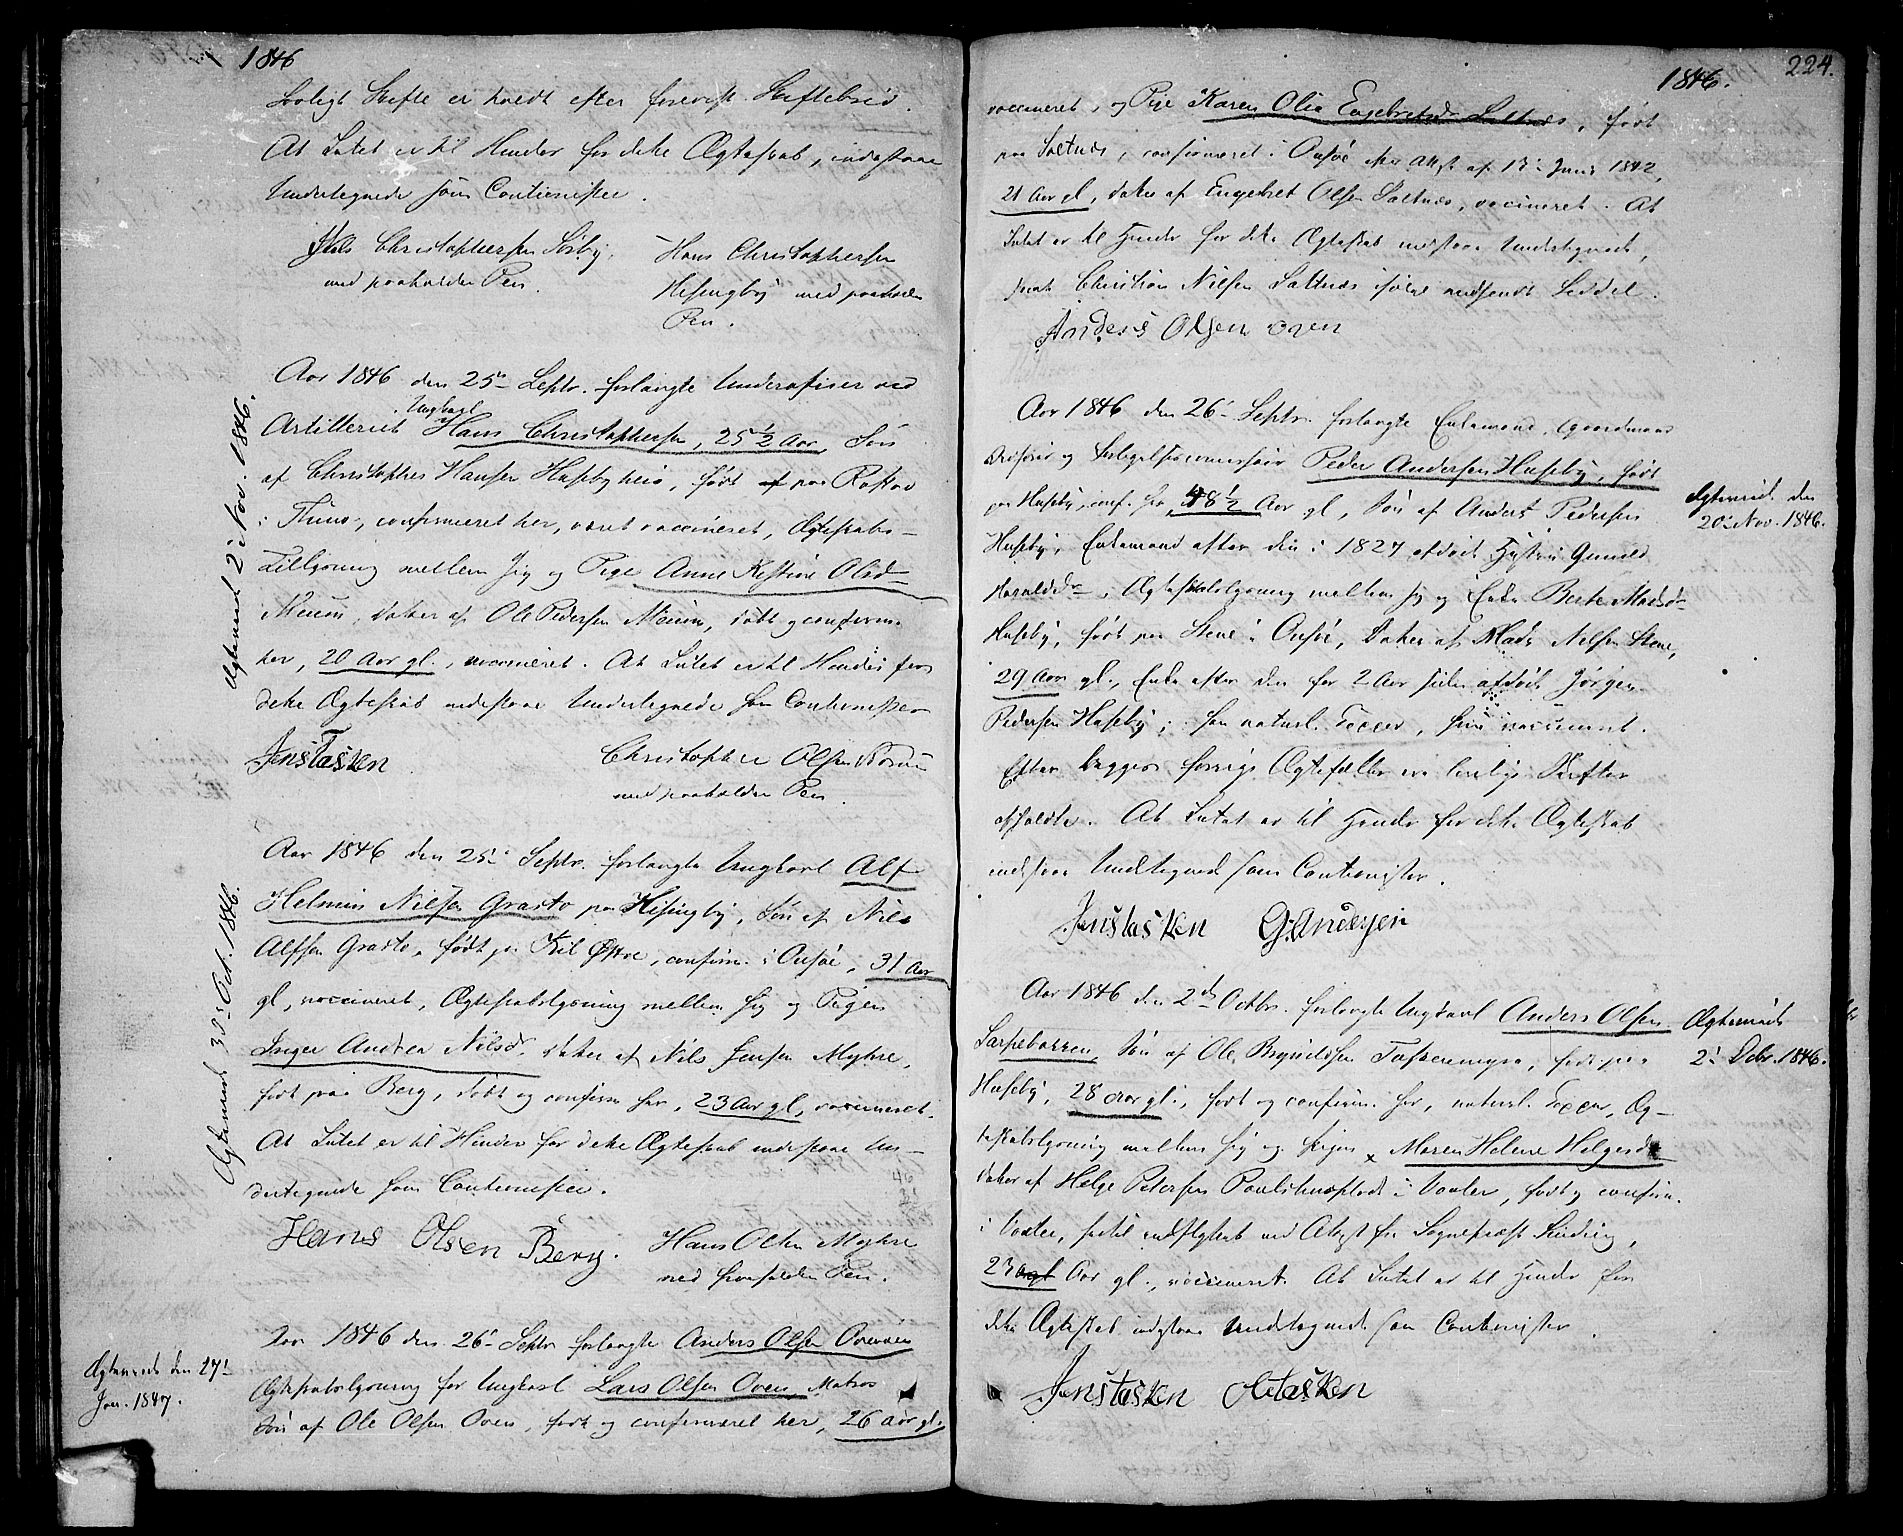 1846
Lovligt Skifte er holdt efter foreviist Skiftebrev.
At Intet er til Hinder for dette Ægteskab, indestaae
Undertegnede som Cautionister.
Niels Christophersen Lisby,
med paaholden Pen.
Hans Christophersen
Hesingby med paaholden
Pen.
Ægteviede 2 Nov. 1846.
Aar 1846 den 25 Septr. forlangte Underofficer ved
Artilleriet Ungkarl Hans Christophersen, 25 1/2 Aar, Søn
af Christopher Hansen Husebyheie, født af paa Rostad
i Thune, confirmeret her, været vaccineret, Ægteskabs-
Tillysning mellem sig og Pige Anne Kistine Olsd.
Moum, Datter af Ole Pedersen Moum, døbt og confirm.
her, 20 Aar gl., vaccineret. At Intet er til Hinder for
dette Ægteskab indestaae Undertegnede som Cautionister
Jens Tasken
Christopher Olsen
med paaholden Pen.
Ægteviede 30 Oct. 1846.
Aar 1846 den 25 Septr. forlangte Ungkarl Alf
Helmin Nilsen Grasto paa Hesingby, Søn af Nils
Alfsen Grasto, født paa Kil Østre, confirm. i Onsøe, 31 Aar
gl, vaccineret, Ægteskabslysning mellem sig og Pigen
Inger Andrea Nilsd. Datter af Nils Jensen Myhre,
født paa Berg, døbt og confirm her, 23 Aar gl, vaccineret.
At Intet er til Hinder for dette Ægteskab indestaae Un-
dertegnede som Cautionister.
Hans Olsen Berg.
Hans Olsen Myhre
med paaholden Pen.
Aar 1846 den 26 Septr forlangte Anders Olsen
Ægteviede den 27
Jan. 1847.
Ægteskabslysning for Ungkarl Lars Olsen Oven, Matros
Søn af Ole Olsen Oven, født og confirmeret her, 26 Aar gl.
1846.
224.
vaccineret, og Pige Karen Olea Engebretsdr Saltnæs, født
paa Saltnæs, confirmeret i Onsøe efter Attest af 13 Juni 1842,
21 Aar gl, datter af Engebret Olsen Saltnæs, vaccineret. At
Intet er til Hinder for dette Ægteskab indestaae Undertegnede,
samt Christian Nilsen Saltnæs ifølge indsendt Seddel.
Anders Olsen oven
Aar 1846 den 26 Septr. forlangte Enkemand, Gaardmand
og Peder Andersen Huseby, født
paa Huseby, conf. her, 48 1/2 Aar gl, Søn af Anders Pedersen
Huseby, Enkemand efter den i 1827 afdøde Hystru Gunild
Haraldsdr, Ægteskabslysning mellem sig og Enke Berte Madsdr
Huseby, født paa Stene i Onsøe, Datter af Mads Nilsen Stene,
29 Aar gl., Enke efter den for 2 Aar siden afdøde Jørgen
Pedersen Huseby; han naturl. Kopper, hun vaccineret.
Efter begges forrige Ægtefæller ere lovlige Skifter
afholdte. At Intet er til Hinder for dette Ægteskab
indestaae Undertegnede som Cautionister.
Ægteviede den
20 Nov. 1846.
Jens Tasken
G. Andersen
Aar 1846 den 2d Octbr. forlangte Ungkarl Anders Olsen
Sarpebakken, Søn af Ole Brynildsen Taskeneiet, født paa
Huseby, 28 Aar gl., født og confirm. her, naturl. Kopper, Æg-
teskabslysning mellem sig og Pigen Maren Helene Helgesdr
Datter af Helge Petersen Poulshusplads i Vaaler, født og confirm.
i Vaaler, hertil indflyttet med Attest fra Sognepræst Kinding,
23 Aar gl., vaccineret. At Intet er til Hinder for
dette Ægteskab indestaae Undertegnede som Cautionister.
Ægteviede
2 Debr. 1846.
Jens Tasken
Ole Tasken